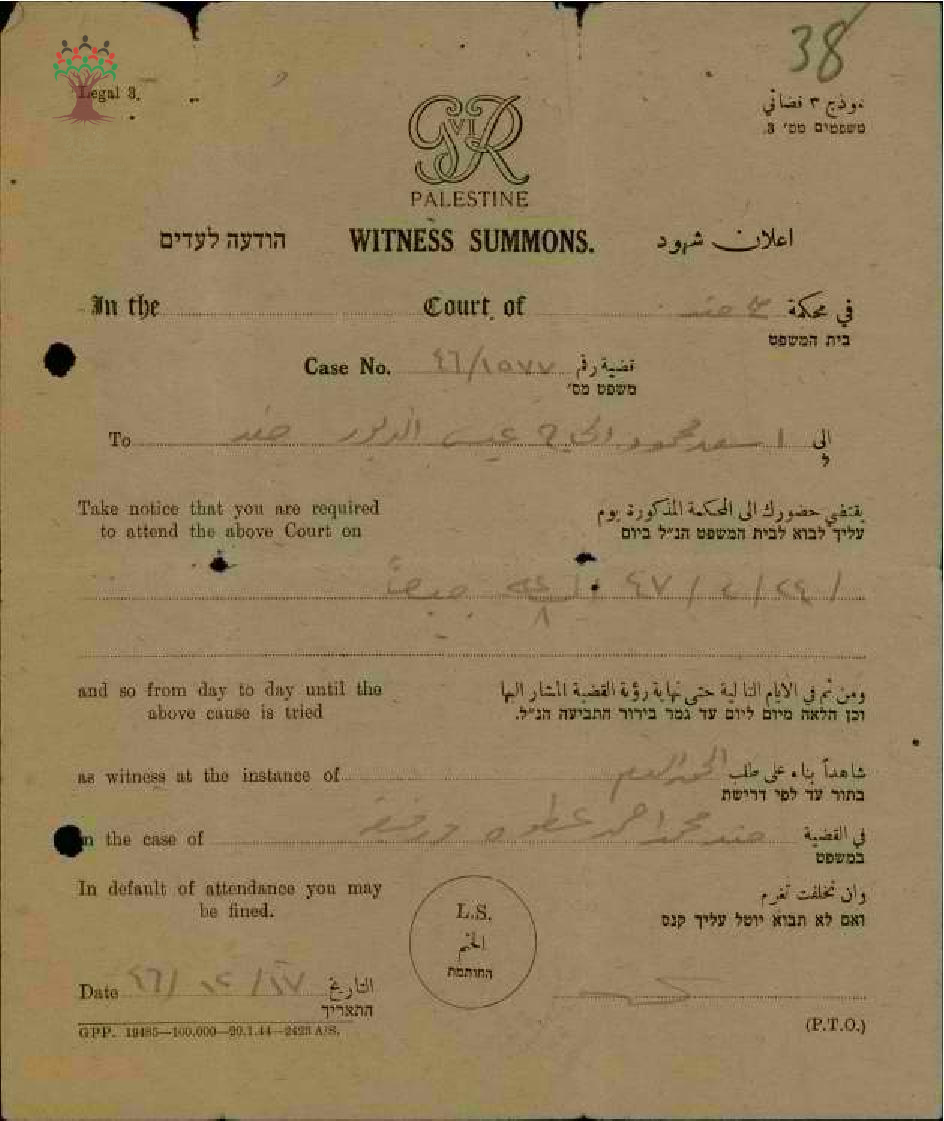 38
Legal 3.
نموذج ٣ قضائي
משפטים מס׳ 3.
G VI R
PALESTINE
הודעה לעדים WITNESS SUMMONS. اعلان شهود
In the Court of في محكمة
בית המשפט
Case No. ٤٦/١٥٧٧ قضية رقم
משפט מס׳
To اسعد محمود الحاج الى
ל
Take notice that you are required يقتضي حضورك الى المحكمة المذكورة يوم
to attend the above Court on עליך לבוא לבית המשפט הנ״ל ביום
٤٧ صباحاً
٨
and so from day to day until the ومن ثم في الايام التالية حتى نهاية رؤية القضية المشار اليها
above cause is tried וכן הלאה מיום ליום עד גמר בירור התביעה הנ״ל.
as witness at the instance of شاهداً بناء على طلب
בתור עד לפי דרישת
in the case of محمد احمد في القضية
במשפט
In default of attendance you may وان تخلفت تغرم
be fined. ואם לא תבוא יוטל עליך קנס
L.S.
الختم
החותמת
Date ٤٦/١٢/١٧ التاريخ
התאריך
GPP. 19485—100,000—20.1.44—2423 A/S.
(P.T.O.)